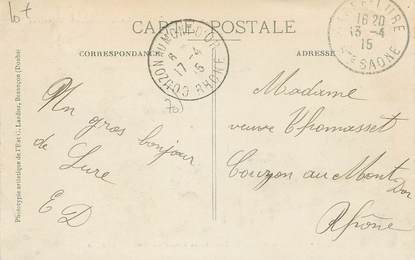 10+
CARTE POSTALE
CORRESPONDANCE
ADRESSE
COUZON AU MONT D'OR
17 -4
15
RHONE
LURE
16 20
13 -4
15
Hte SAONE
70
Un gros bonjour
de Lure
E D
Madame
veuve Thomasset
Couzon au Mont
Dor
Rhône
Phototypie artistique de l'Est
Lardier, Besançon (Doubs)